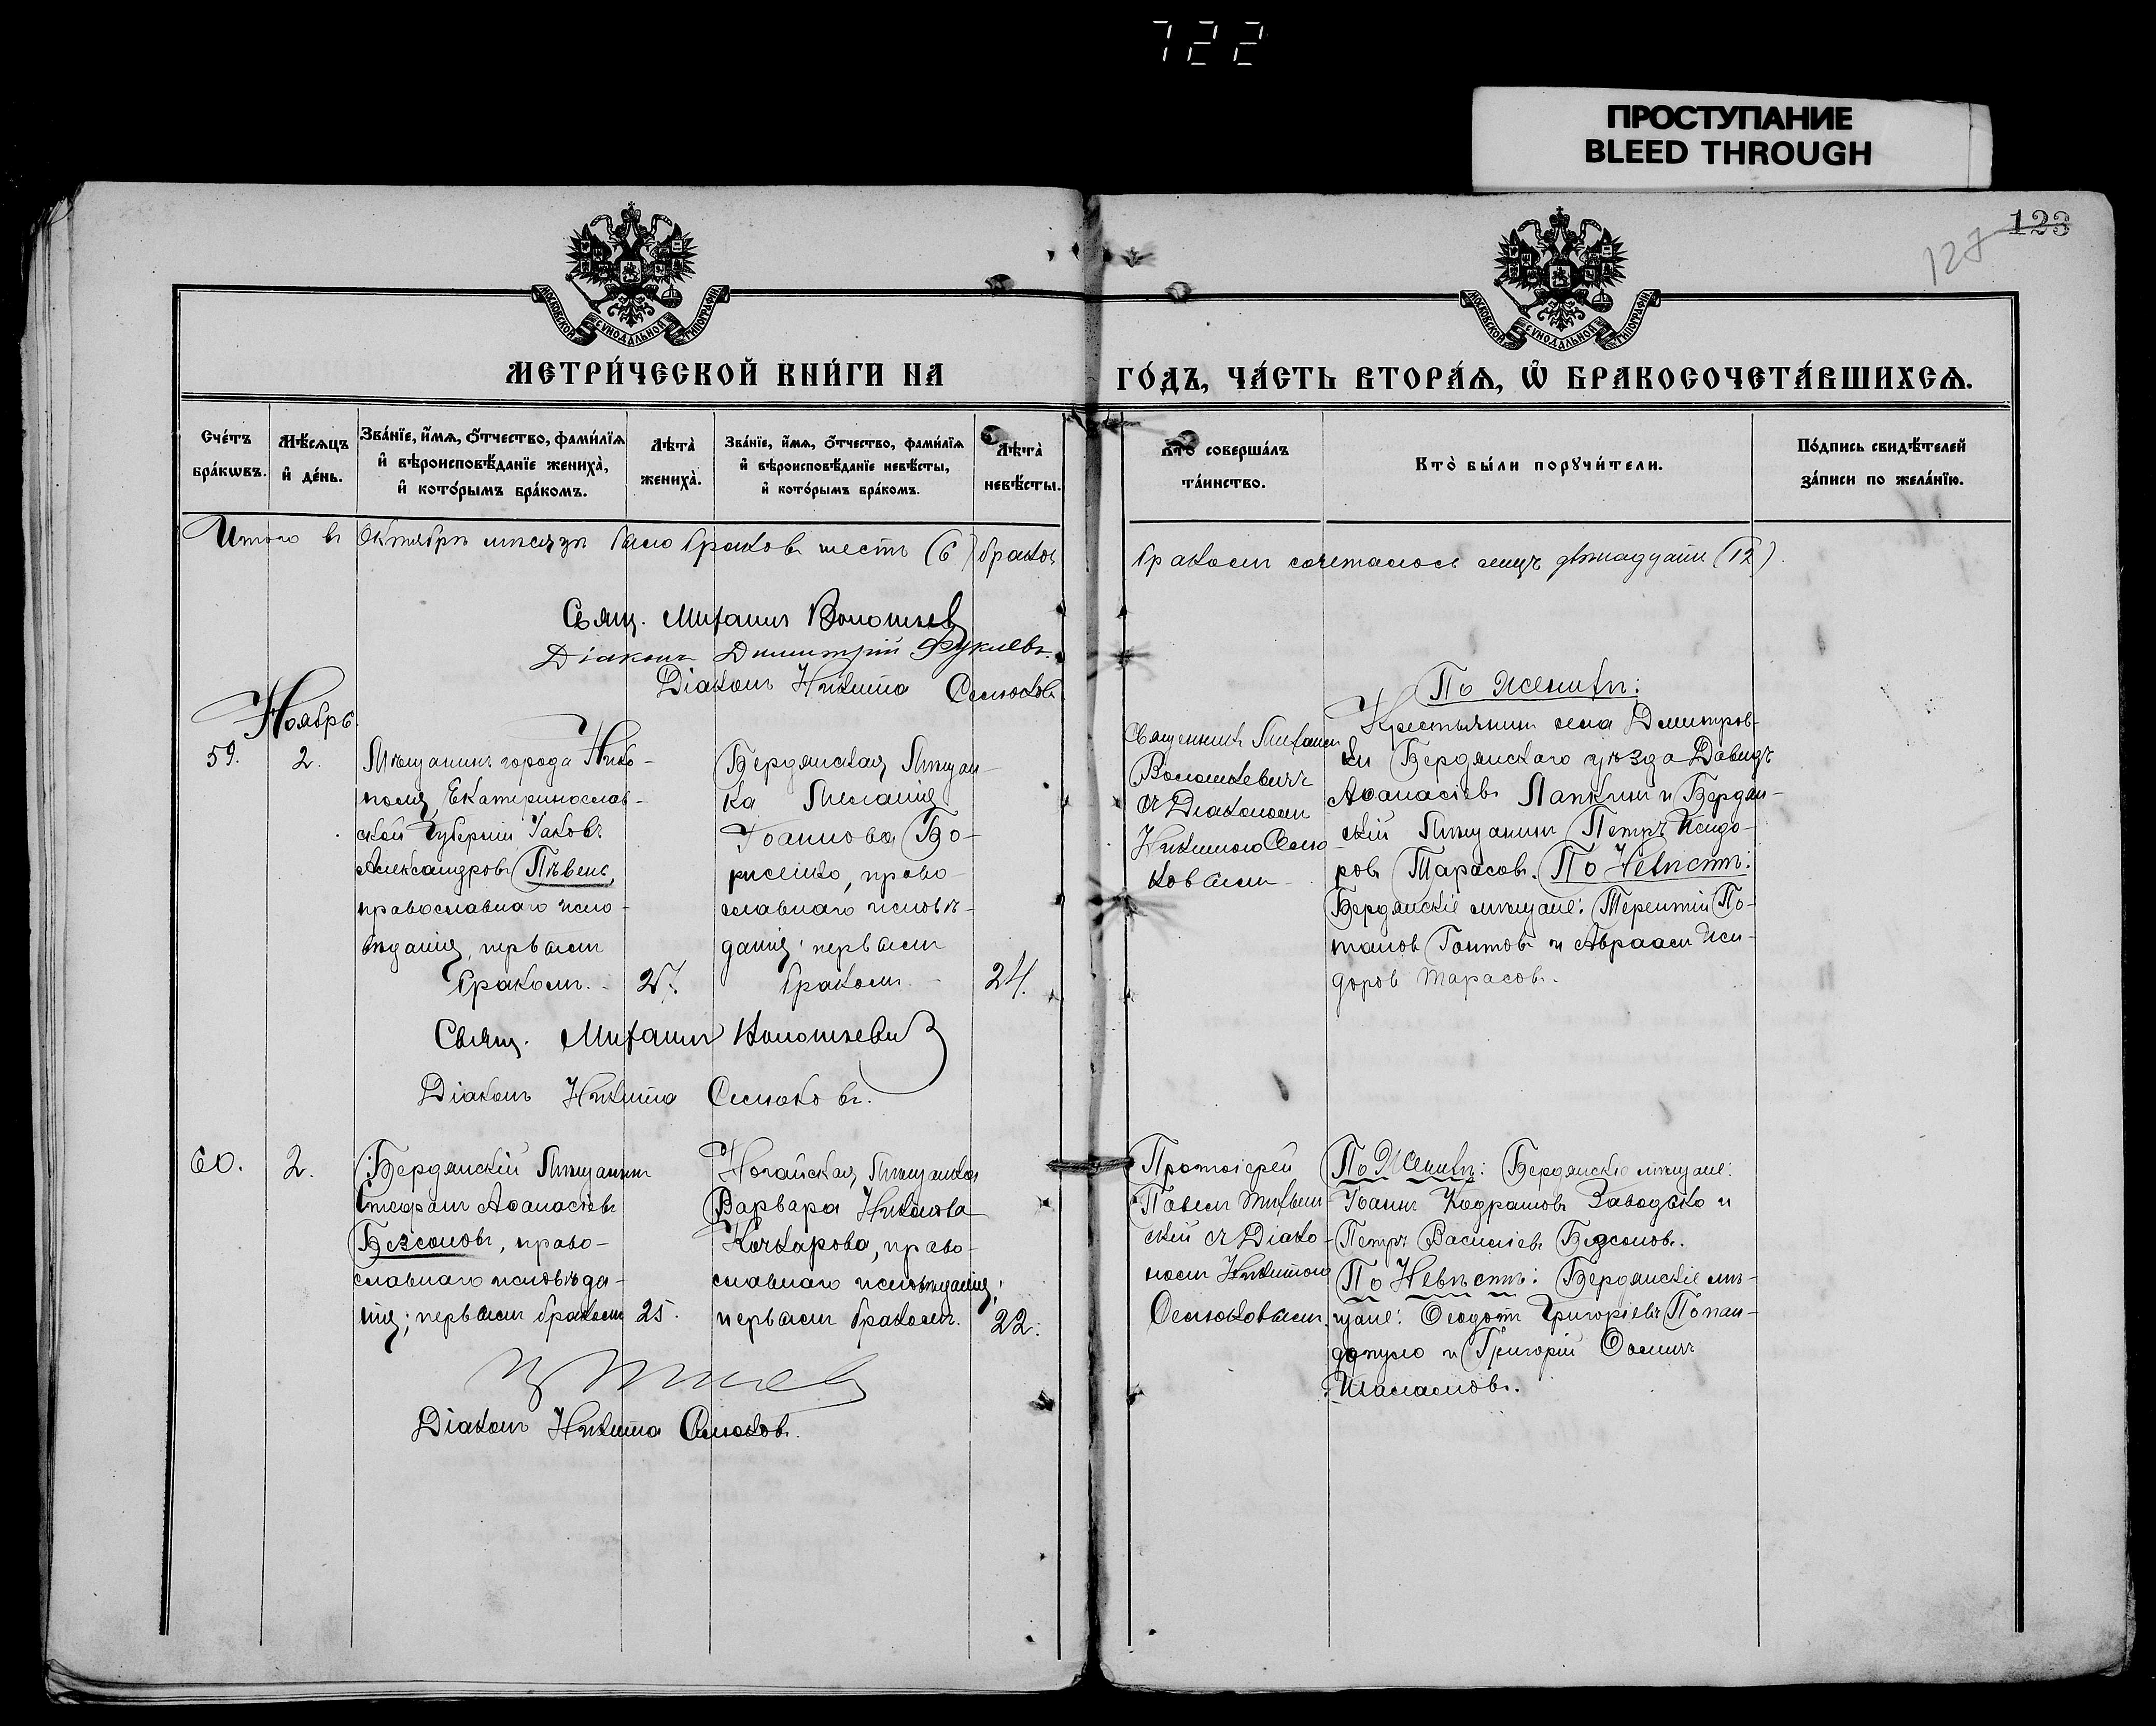 722
ПРОСТУПАНИЕ
BLEED THROUGH
123
127
МОСКОВСКОЙ СѴНОДАЛЬНОЙ ТИПОГРАФІИ
МОСКОВСКОЙ СѴНОДАЛЬНОЙ ТИПОГРАФІИ
МЕТРИ́ЧЕСКОЙ КНИ́ГИ НА
ГО́ДЪ, ЧА́СТЬ ВТОРА́Ѧ, Ѡ҆ БРАКОСОЧЕТА́ВШИХСѦ.
Сче́тъ
бра́кѡвъ.
Мѣ́сѧцъ
и҆ де́нь.
Зва́нїе, и҆́мѧ, ѻ҆́тчество, фами́лїѧ
и҆ вѣроисповѣ́данїе жениха̀,
и҆ кото́рымъ бра́комъ.
Лѣта̀
жениха̀.
Зва́нїе, и҆́мѧ, ѻ҆́тчество, фами́лїѧ
и҆ вѣроисповѣ́данїе невѣ́сты,
и҆ кото́рымъ бра́комъ.
Лѣта̀
невѣ́сты.
Кто̀ соверша́лъ
та́инство.
Кто̀ бы́ли порꙋчи́тели.
По́дпись свидѣ́телей
за́писи по жела́нїю.
Итого въ Октябрѣ мѣсяцѣ было браковъ шесть (6)
бракомъ сочеталось лицъ двѣнадцать (12)
Свящ. Михаилъ
Діаконъ Димитрій
Діаконъ Никита Семюковъ.
Ноябрь
59.
2.
Мѣщанинъ города Нико-
поля, Екатеринослав-
ской губерніи Іаковъ
Александровъ Пѣвень,
православнаго испо-
вѣданія, первымъ
бракомъ.
27.
Бердянская Мѣщан-
ка Меланія
Іоаннова Бо-
рисенко, право-
славнаго исповѣ-
данія, первымъ
бракомъ.
24.
Священникъ Михаилъ
Волошкевичъ
съ Діакономъ
Никитою Семю-
ковымъ
По Женихѣ:
Крестьянинъ села Дмитров-
ки Бердянскаго уѣзда Давидъ
Аѳанасіевъ Лапкинъ и Бердян-
скій Мѣщанинъ Петръ Исидо-
ровъ Тарасовъ. По Невѣстѣ:
Бердянскіе мѣщане: Терентій По-
таповъ и Авраамъ Иси-
доровъ Тарасовъ.
Свящ. Михаилъ Волошкевичъ
Діаконъ Никита Семюковъ.
60.
2.
Бердянскій Мѣщанинъ
Стефанъ Аѳанасіевъ
Безсоновъ, право-
славнаго исповѣда-
нія; первымъ бракомъ
25.
Ногайская Мѣщанка
Варвара
Кочкарова, право-
славнаго исповѣданія;
первымъ бракомъ.
22.
Протоіерей
Павелъ
съ Діако-
номъ Никитою
Семюковымъ.
По Женихѣ: Бердянскіе мѣщане:
Іоаннъ Кодратовъ и
Петръ Василіевъ Безсоновъ.
По Невѣстѣ: Бердянскіе мѣ-
щане: Ѳеодотъ Григоріевъ Попан-
допуло и Григорій Ѳоминъ
Діаконъ Никита Семюковъ.